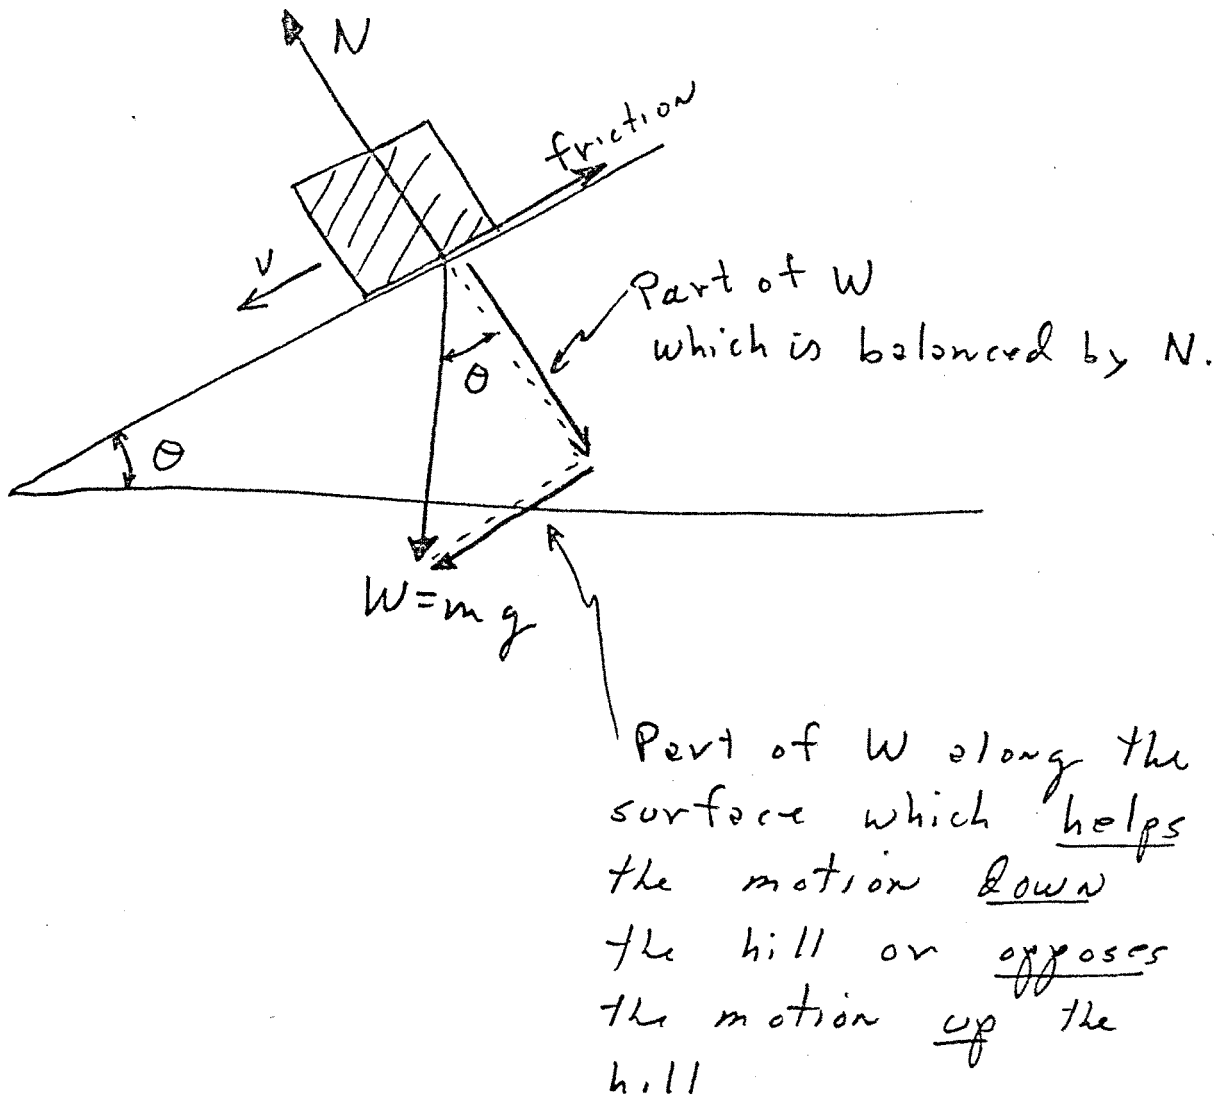 N
friction
v
Part of W
which is balanced by N.
θ
θ
W=mg
Part of W along the
surface which helps
the motion down
the hill or opposes
the motion up the
hill